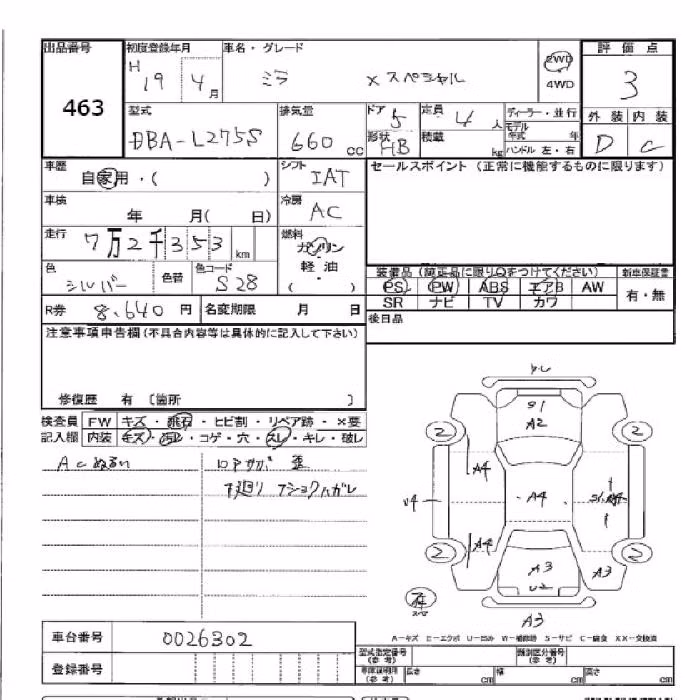 出品番号 初度登録年月 車名・グレード 2WD 評価点
463 H 19 4月 ミラ Xスペシャル 4WD 3
型式 排気量 ドア 5 定員 4人 ディーラー・並行 外装 内装
DBA-L275S 660cc 形状 HB 積載 kg モデル年式 年 ハンドル 左・右 D C
車歴 自家用・( ) シフト IAT セールスポイント (正常に機能するものに限ります)
車検 年 月( 日) 冷房 AC
走行 7万2千353km 燃料 ガソリン
軽油
( )
色 シルバー 色替 色コード S28
装備品(純正品に限り○をつけてください) 新車保証書
PS PW ABS エアB AW 有・無
SR ナビ TV カワ
R券 8,640円 名変期限 月 日 後日品
注意事項申告欄(不具合内容等は具体的に記入して下さい)
修復歴 有 〔箇所 〕
検査員 FW キズ・飛石・ヒビ割・リペア跡・×要
記入欄 内装 キズ・汚レ・コゲ・穴・スレ・キレ・破レ
ACぬるい
ロアサポ 歪
下廻り
S1
A2
2 2
A4
U4 A4
A4
2 2
A3 A3
U2
A3
A-キズ E-エクボ U-凹み W-補修跡 S-サビ C-腐食 XX-交換済
車台番号 0026302
登録番号
型式指定番号(参考) 類別区分番号(参考)
長さ cm 幅 cm 高さ cm